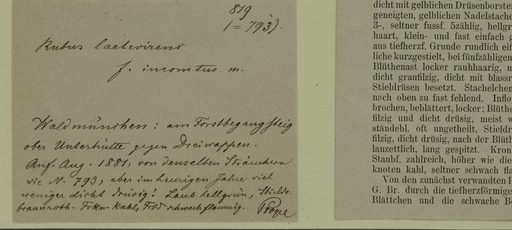 819
(= 793)
Rubus laetevirens
f. incomtus m.
Waldmünchen: am Forstbegangsteig
ober Unterhütte gegen Dreiwappen.
Anf. Aug. 1881, von denselben Sträuchern
wie N. 793, aber im heurigen Jahre viel
weniger dicht drüsig! Laub hellgrün,
braunroth. Frkn. kahl, schwach flaumig.
Progel
dicht mit gelblichen Drüsenborsten
geneigten, gelblichen Nadelstache
3-, seltner fussf. 5zählig, hellgr
haart, klein- und fast einfach g
aus tiefherzf. Grunde rundlich eif
liche kurzgestielt, bei fünfzähligen
Blüthenast locker rauhhaarig, n
dicht graufilzig, dicht mit blassr
Stieldrüsen besetzt. Stachelchen
nach oben zu fast fehlend. Inflo
brochen, beblättert, locker; Blüthe
filzig und dicht drüsig, meist w
ständebl. oft ungetheilt, Stieldr
filzig, dicht drüsig, nach der Blüt
lanzettlich, lang gespitzt. Kron
Staubf. zahlreich, höher wie die
knoten kahl, seltner schwach fla
Von den zunächst verwandten F
G. Br. durch die tiefherzförmige
Blättchen und die schwache Be